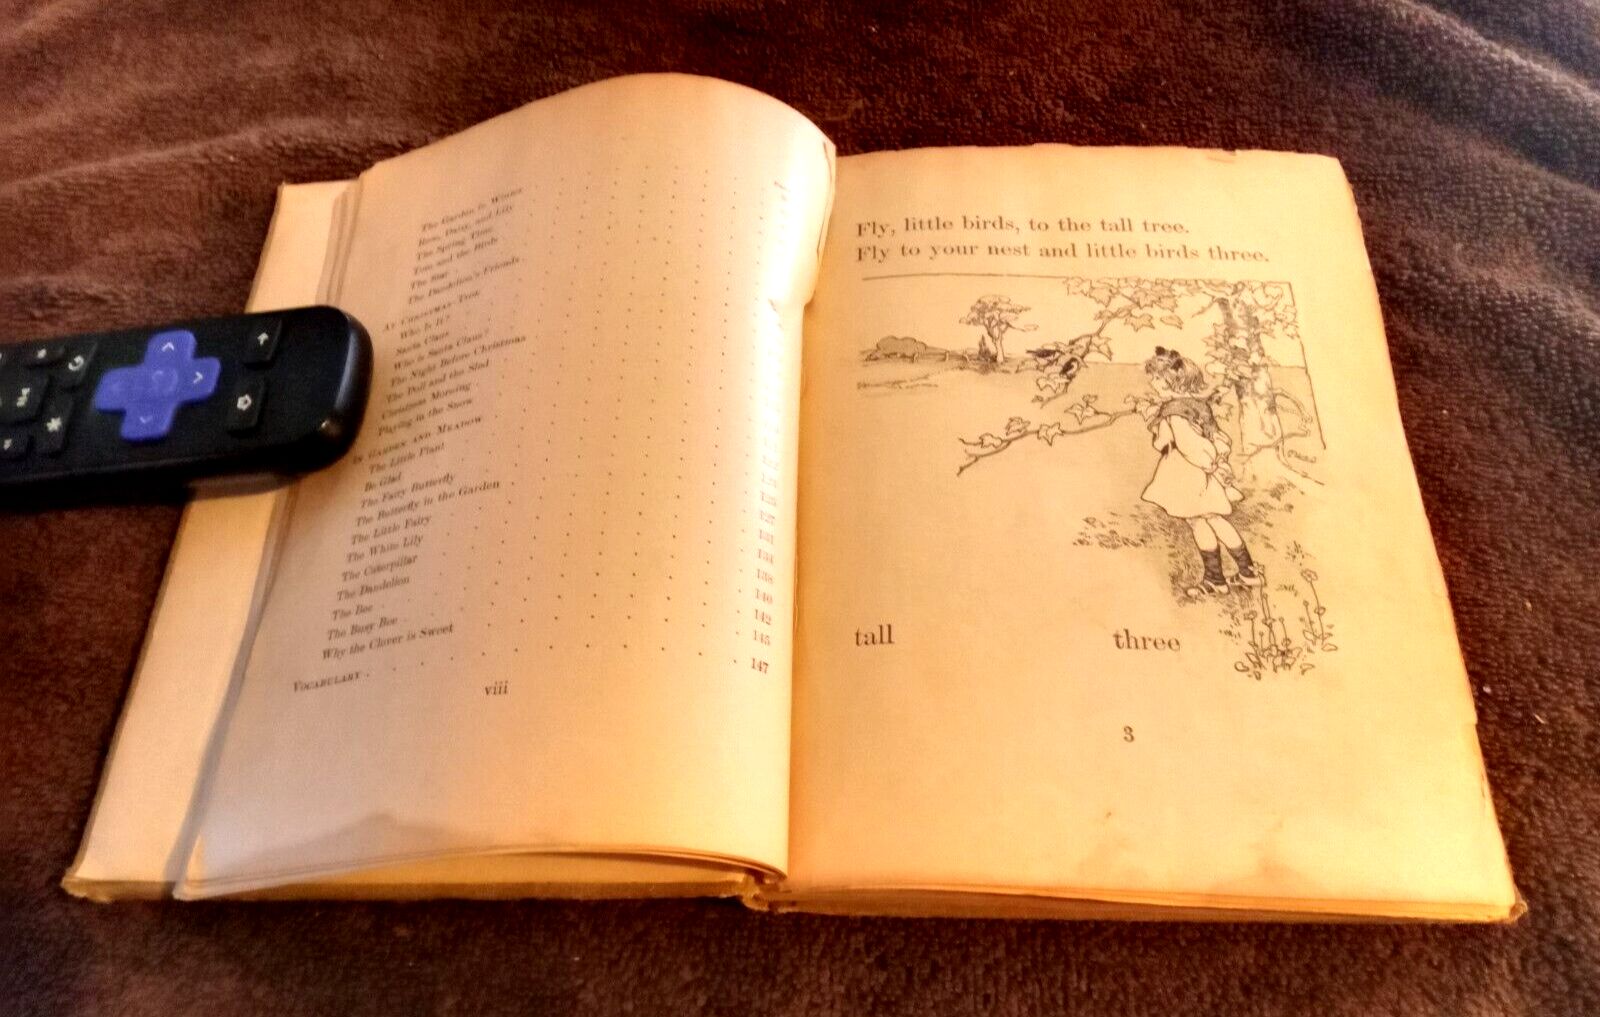 The Garden in Winter
Rose, Daisy, and Lily
The Spring Time
Tom and the Birds
The Star
The Dandelion's Friends
At Christmas-Time
Who Is It?
Santa Claus
Who is Santa Claus?
The Night Before Christmas
The Doll and the Sled
Christmas Morning
Playing in the Snow
In Garden and Meadow
The Little Plant
Be Glad
The Fairy Butterfly
The Butterfly in the Garden 125
The Little Fairy 127
The White Lily 131
The Caterpillar 134
The Dandelion 138
The Bee 140
The Busy Bee 142
Why the Clover is Sweet 145
Vocabulary 147
viii
Fly, little birds, to the tall tree.
Fly to your nest and little birds three.
tall three
3